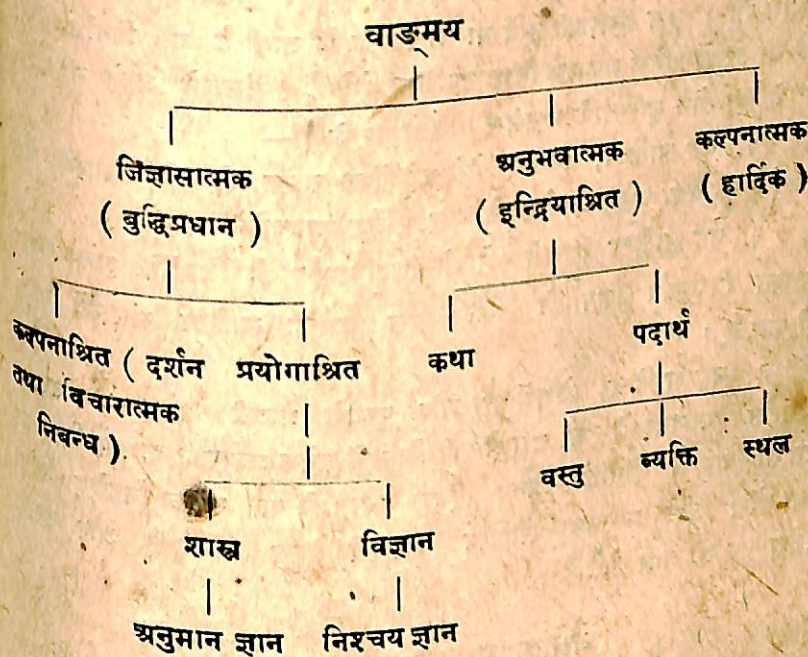 वाङ्मय
जिज्ञासात्मक
( बुद्धिप्रधान )
अनुभवात्मक
( इन्द्रियाश्रित )
कल्पनात्मक
( हार्दिक )
कल्पनाश्रित ( दर्शन
तथा विचारात्मक
निबन्ध )
प्रयोगाश्रित
कथा
पदार्थ
वस्तु व्यक्ति स्थल
शास्त्र विज्ञान
अनुमान ज्ञान निश्चय ज्ञान